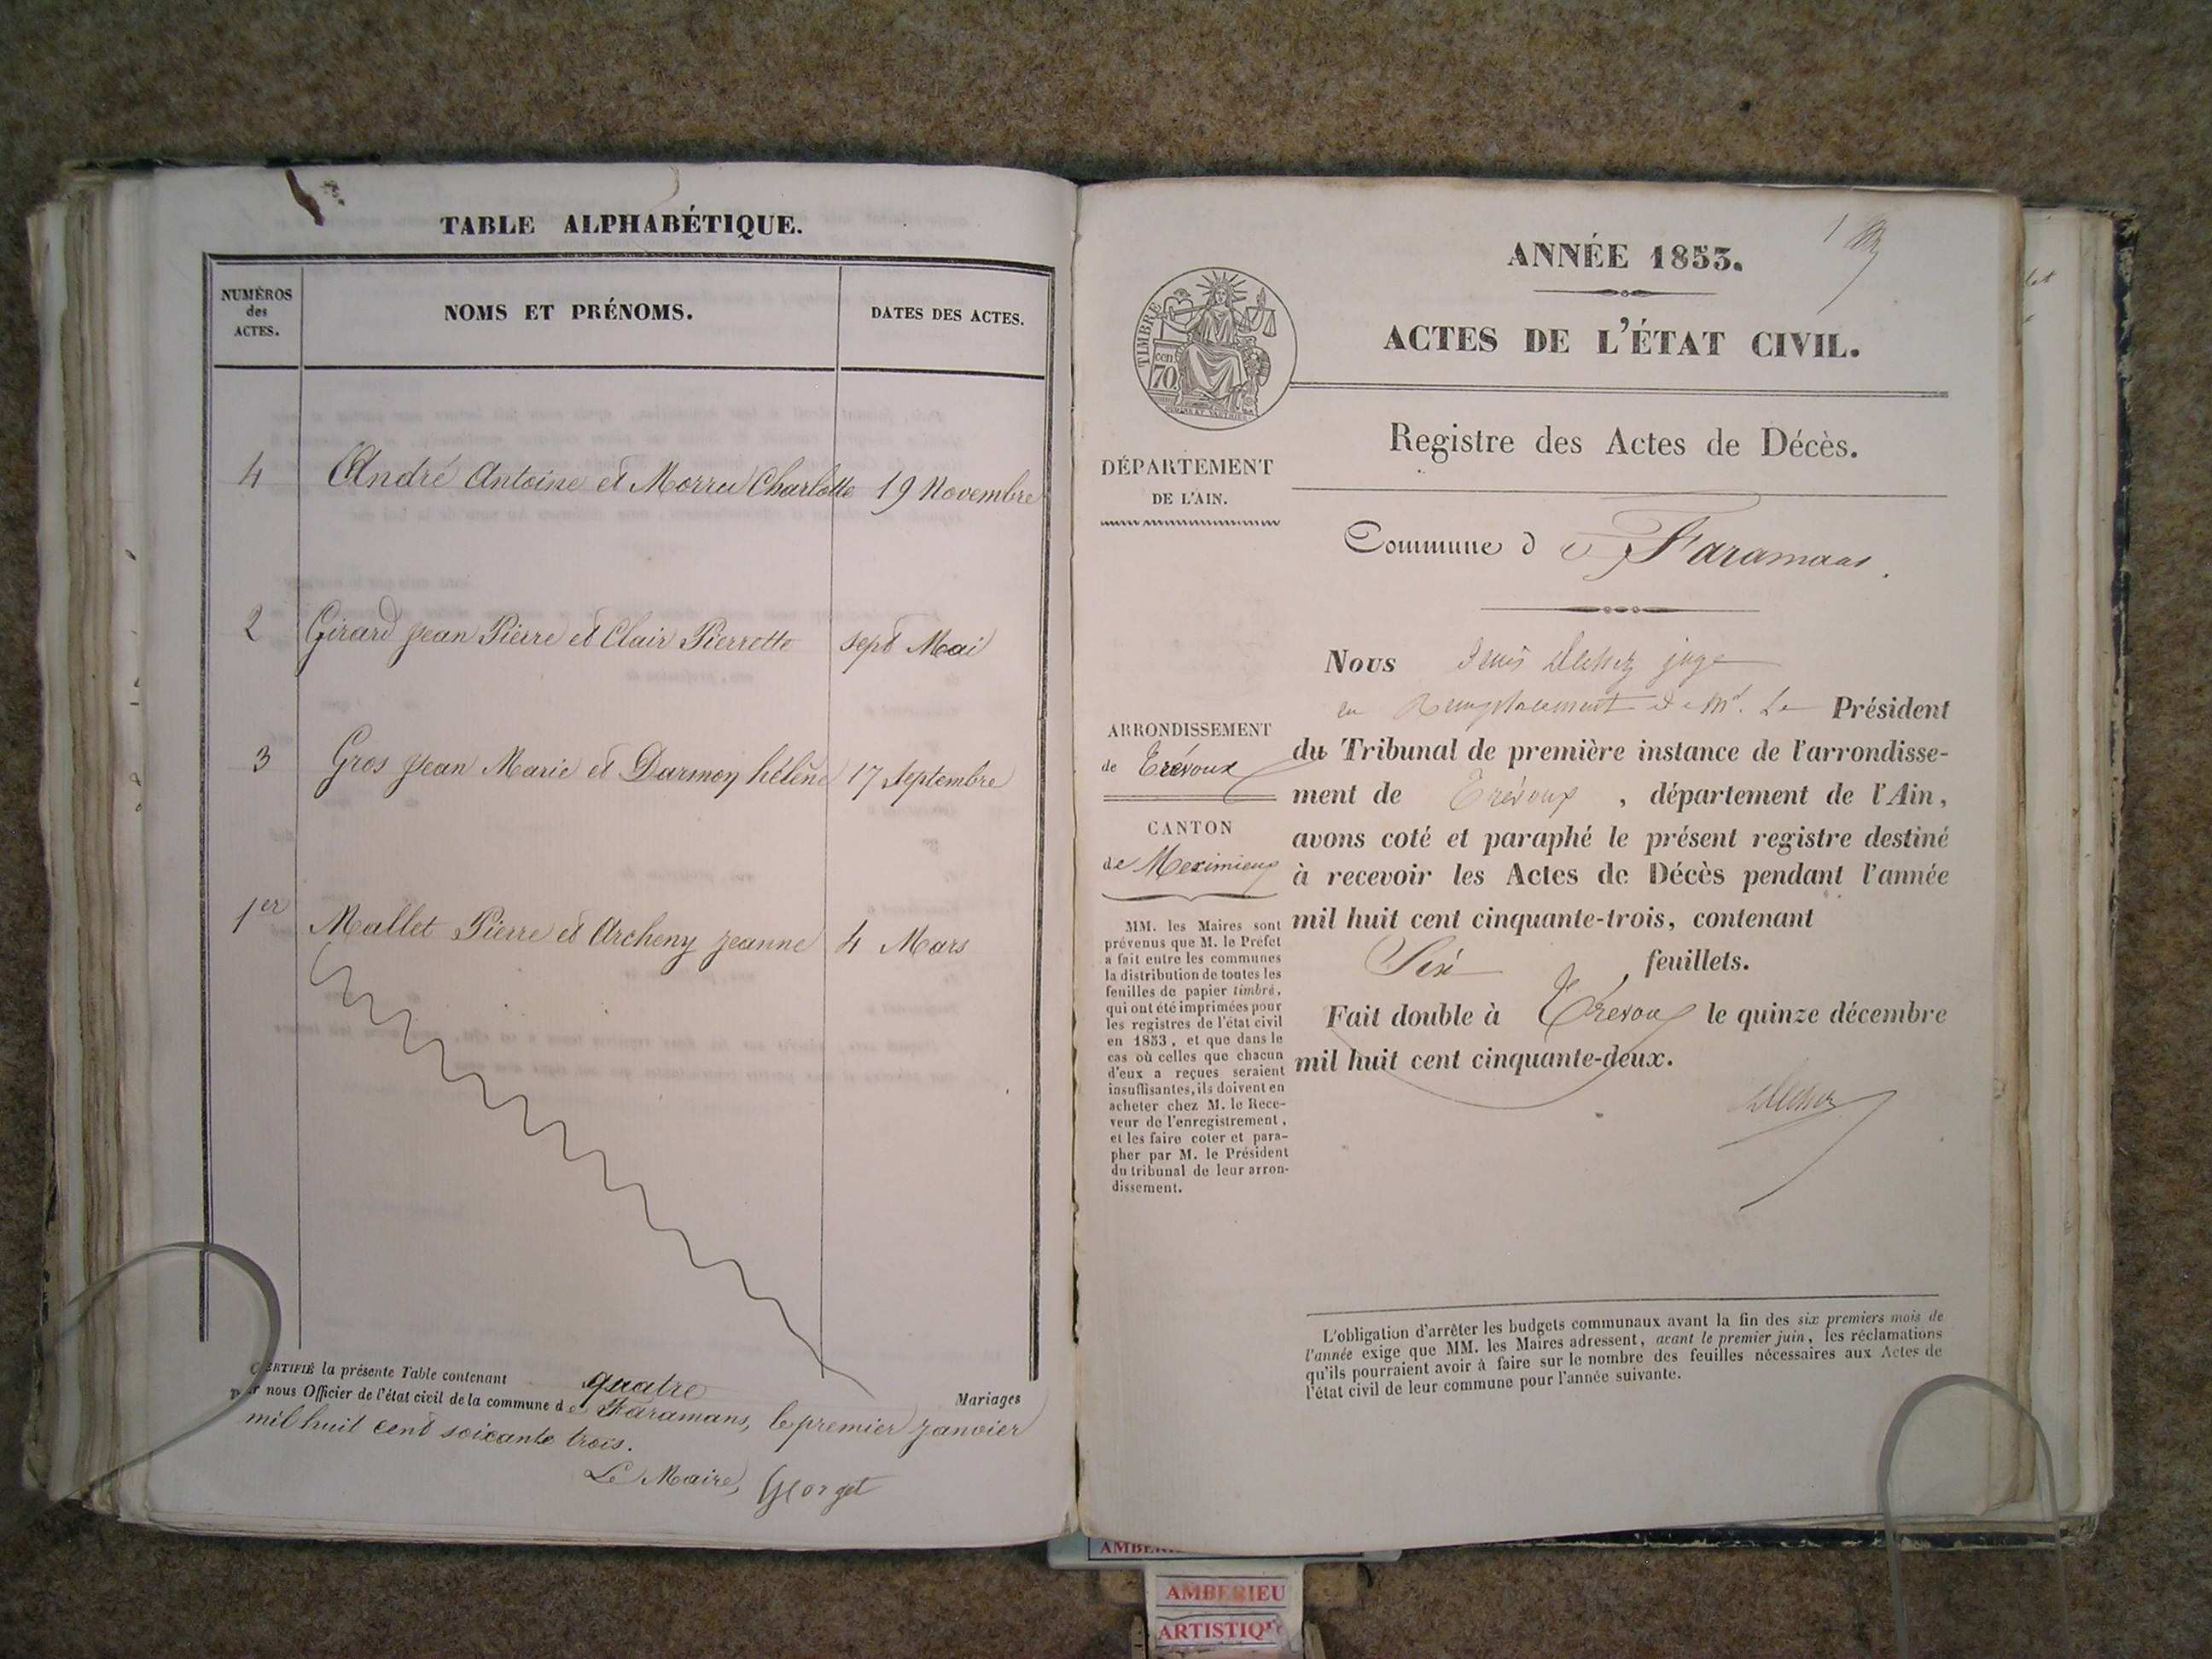 TABLE ALPHABÉTIQUE.
NUMÉROS
des
ACTES.
NOMS ET PRÉNOMS.
DATES DES ACTES.
4 André Antoine et Charlotte 19 Novembre
2 Girard jean Pierre et Clair Pierrette sept Mai
3 Gros jean Marie et Darmon hélène 17 Septembre
1er Mallet Pierre et Archeny jeanne 4 Mars
CERTIFIÉ la présente Table contenant quatre Mariages
par nous Officier de l'état civil de la commune de Faramans, le premier janvier
mil huit cent soixante trois.
Le Maire, Gorget
1
ANNÉE 1853.
ACTES DE L'ÉTAT CIVIL.
TIMBRE
70 cen
DÉPARTEMENT
DE L'AIN.
Registre des Actes de Décès.
Commune de Faramans.
ARRONDISSEMENT
de Trévoux
CANTON
de Meximieux
MM. les Maires sont
prévenus que M. le Préfet
a fait entre les communes
la distribution de toutes les
feuilles de papier timbré,
qui ont été imprimées pour
les registres de l'état civil
en 1853, et que dans le
cas où celles que chacun
d'eux a reçues seraient
insuffisantes, ils doivent en
acheter chez M. le Rece-
veur de l'enregistrement,
et les faire coter et para-
pher par M. le Président
du tribunal de leur arron-
dissement.
Nous juge
en Remplacement de Mr. Le Président
du Tribunal de première instance de l'arrondisse-
ment de Trévoux, département de l'Ain,
avons coté et paraphé le présent registre destiné
à recevoir les Actes de Décès pendant l'année
mil huit cent cinquante-trois, contenant
Six feuillets.
Fait double à Trévoux le quinze décembre
mil huit cent cinquante-deux.
L'obligation d'arrêter les budgets communaux avant la fin des six premiers mois de
l'année exige que MM. les Maires adressent, avant le premier juin, les réclamations
qu'ils pourraient avoir à faire sur le nombre des feuilles nécessaires aux Actes de
l'état civil de leur commune pour l'année suivante.
AMBERIEU
ARTISTIQ